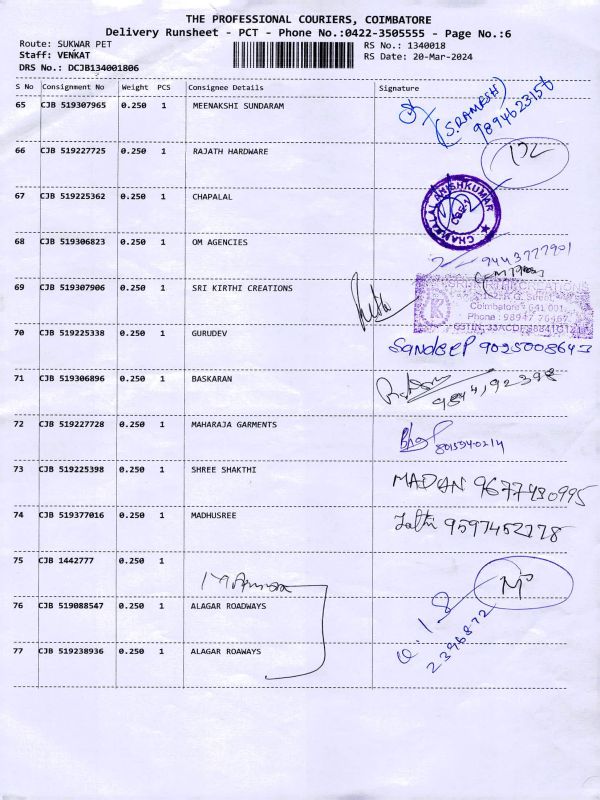 THE PROFESSIONAL COURIERS, COIMBATORE
Delivery Runsheet - PCT - Phone No.:0422-3505555 - Page No.:6
Route: SUKWAR PET
RS No.: 1340018
Staff: VENKAT
RS Date: 20-Mar-2024
DRS No.: DCJB134001806
S No Consignment No Weight PCS Consignee Details Signature
65 CJB 519307965 0.250 1 MEENAKSHI SUNDARAM
(S.RAMESH)
9894623156
66 CJB 519227725 0.250 1 RAJATH HARDWARE
67 CJB 519225362 0.250 1 CHAPALAL
68 CJB 519306823 0.250 1 OM AGENCIES
9443777901
69 CJB 519307906 0.250 1 SRI KIRTHI CREATIONS
Coimbatore - 641 001
Phone : 98947 76467
70 CJB 519225338 0.250 1 GURUDEV
Sandeep 9025008643
71 CJB 519306896 0.250 1 BASKARAN
72 CJB 519227728 0.250 1 MAHARAJA GARMENTS
73 CJB 519225398 0.250 1 SHREE SHAKTHI
MADAN 9677490995
74 CJB 519377016 0.250 1 MADHUSREE
9597452178
75 CJB 1442777 0.250 1
76 CJB 519088547 0.250 1 ALAGAR ROADWAYS
2396872
77 CJB 519238936 0.250 1 ALAGAR ROAWAYS